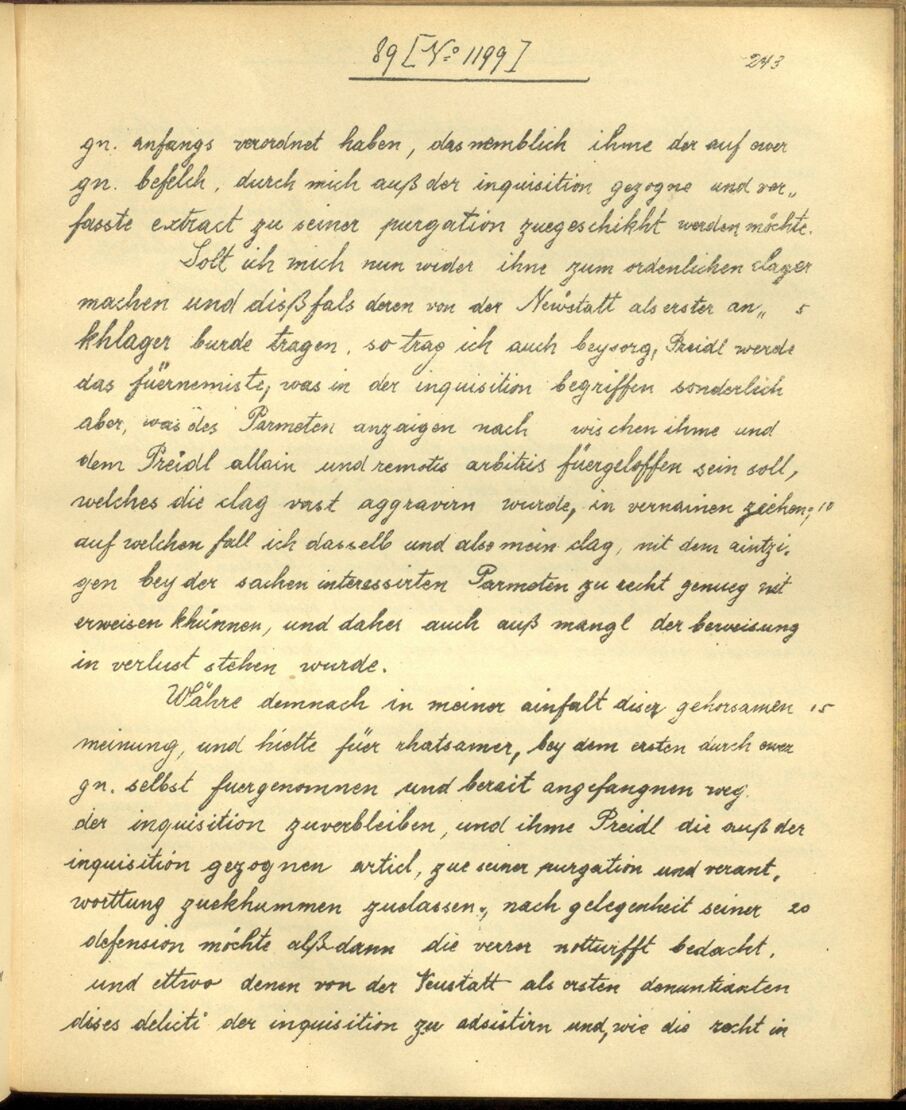 89 [Nº 1199]
243
gn. anfangs verordnet haben, das nemblich ihme der auf ewer
gn. befelch, durch mich auß der inquisition gezogne und ver„
fasste extract zu seiner purgation zuegeschikht werden möchte.
Solt ich mich nun wider ihne zum ordenlichen clager
machen und dißfals deren von der Newstatt als erster an„ 5
khlager burde tragen, so trag ich auch beysorg, Preidl werde
das füernemiste, was in der inquisition begriffen sonderlich
aber, was des Parmoten anzaigen nach wischen ihme und
dem Preidl allain und remotis arbitiis füergeloffen sein soll,
welches die clag vast aggravirn wurde, in vernainen ziehen; 10
auf welchen fall ich dasselb und also mein clag, mit dem aintzi„
gen bey der sachen interessirten Parmoten zu recht genueg nit
erweisen khünnen, und daher auch auß mangl der berweisung
in verlust stehen wurde.
Währe demnach in meiner ainfalt diser gehorsamen 15
meinung, und hielte für rhatsamer, bey dem ersten durch ewer
gn. selbst fuergenomnen und berait angefangnen weg
der inquisition zuverbleiben, und ihme Preidl die auß der
inquisition gezognen articl, zue seiner purgation und verant„
worttung zuekhummen zuelassen, nach gelegenheit seiner 20
defension möchte alß dann die verrer notturfft bedacht,
und ettwo denen von der Neustatt als ersten denuntianten
dises delicti der inquisition zu adsistirn und, wie die recht in